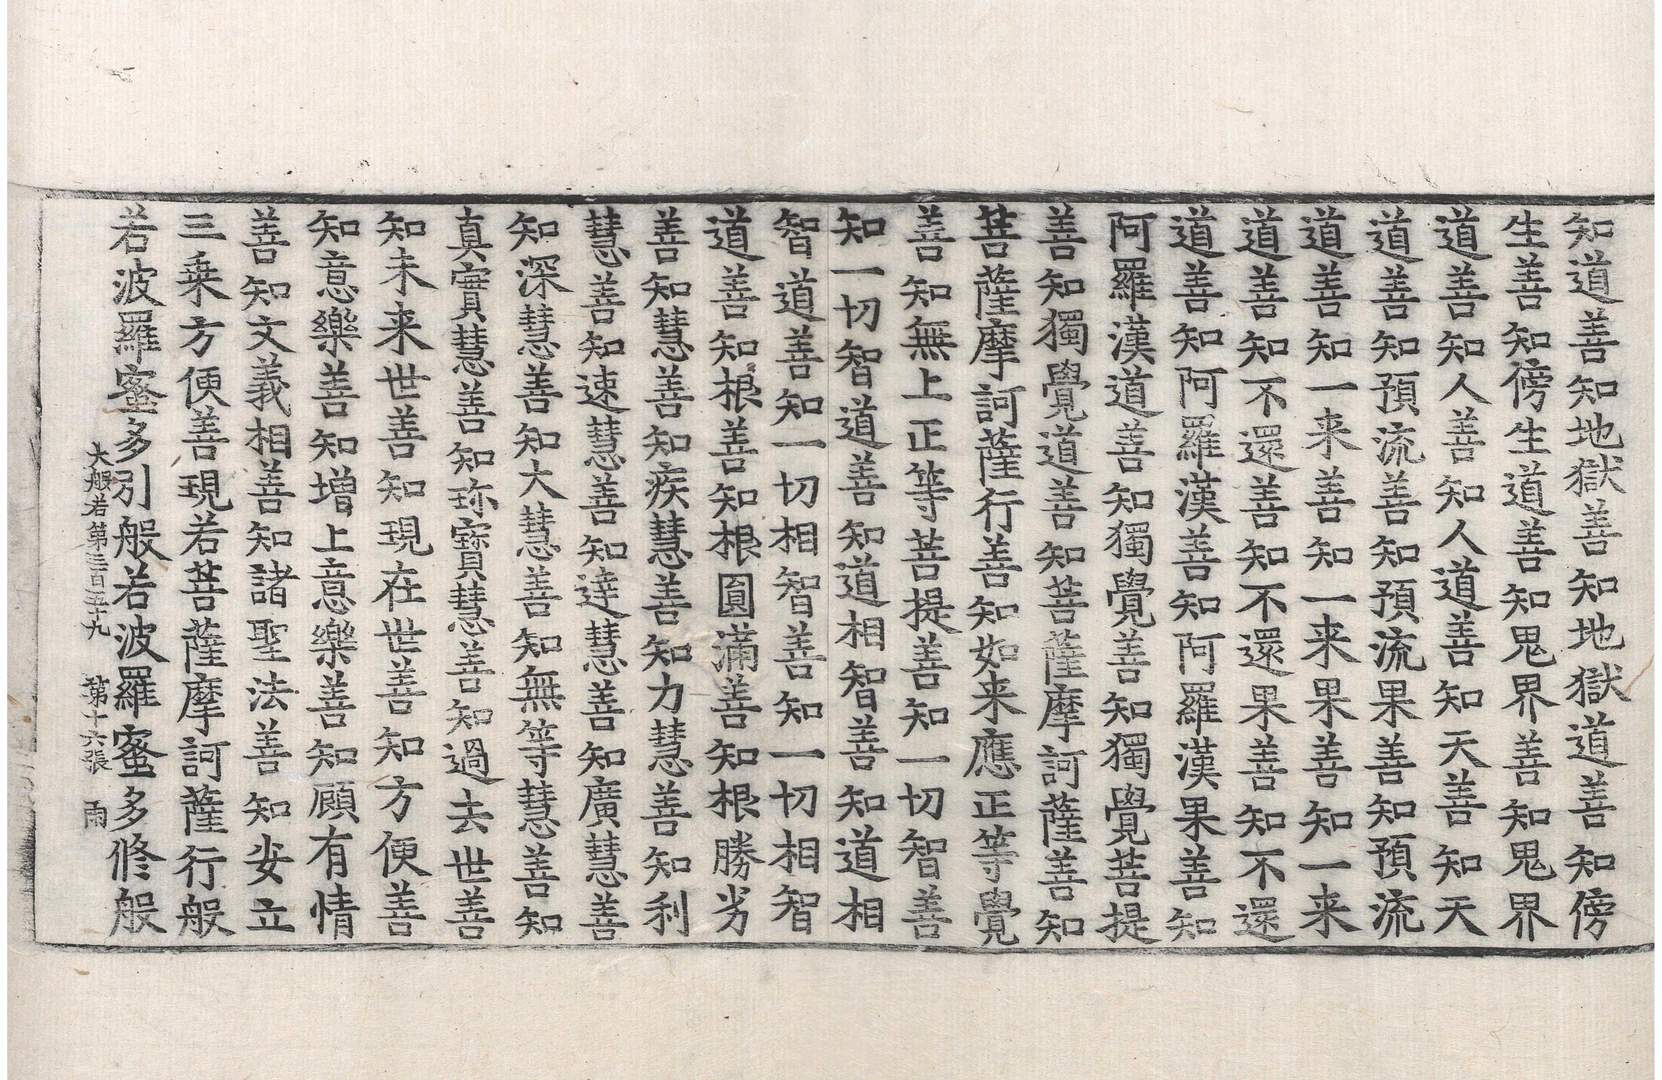 知道善知地獄善知地獄道善知傍
生善知傍生道善知鬼界善知鬼界
道善知人善知人道善知天善知天
道善知預流善知預流果善知預流
道善知一来善知一来果善知一来
道善知不還善知不還果善知不還
道善知阿羅漢善知阿羅漢果善知
阿羅漢道善知獨覺善知獨覺菩提
善知獨覺道善知菩薩摩訶薩善知
菩薩摩訶薩行善知如来應正等覺
善知無上正等菩提善知一切智善
知一切智道善知道相智善知道相
智道善知一切相智善知一切相智
道善知根善知根圓滿善知根勝劣
善知慧善知疾慧善知力慧善知利
慧善知速慧善知達慧善知廣慧善
知深慧善知大慧善知無等慧善知
真實慧善知珎寶慧善知過去世善
知未来世善知現在世善知方便善
知意樂善知增上意樂善知顧有情
善知文義相善知諸聖法善知安立
三乗方便善現若菩薩摩訶薩行般
若波羅蜜多引般若波羅蜜多脩般
大般若第三百五九 第十六張 雨